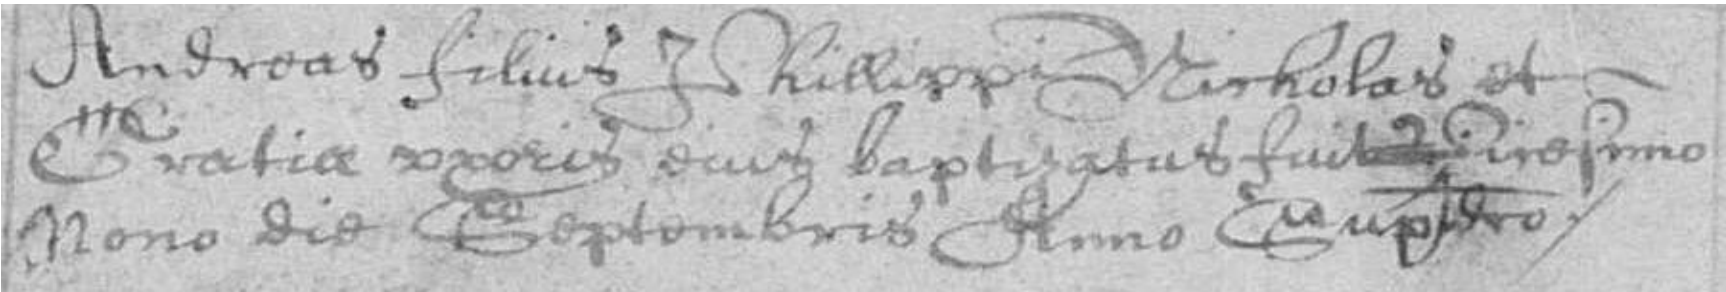 Andreas filius Phillippi Nicholas et
Gratiæ vxoris eius baptizatus fuit vicesimo
Nono die Septembris Anno Supdro